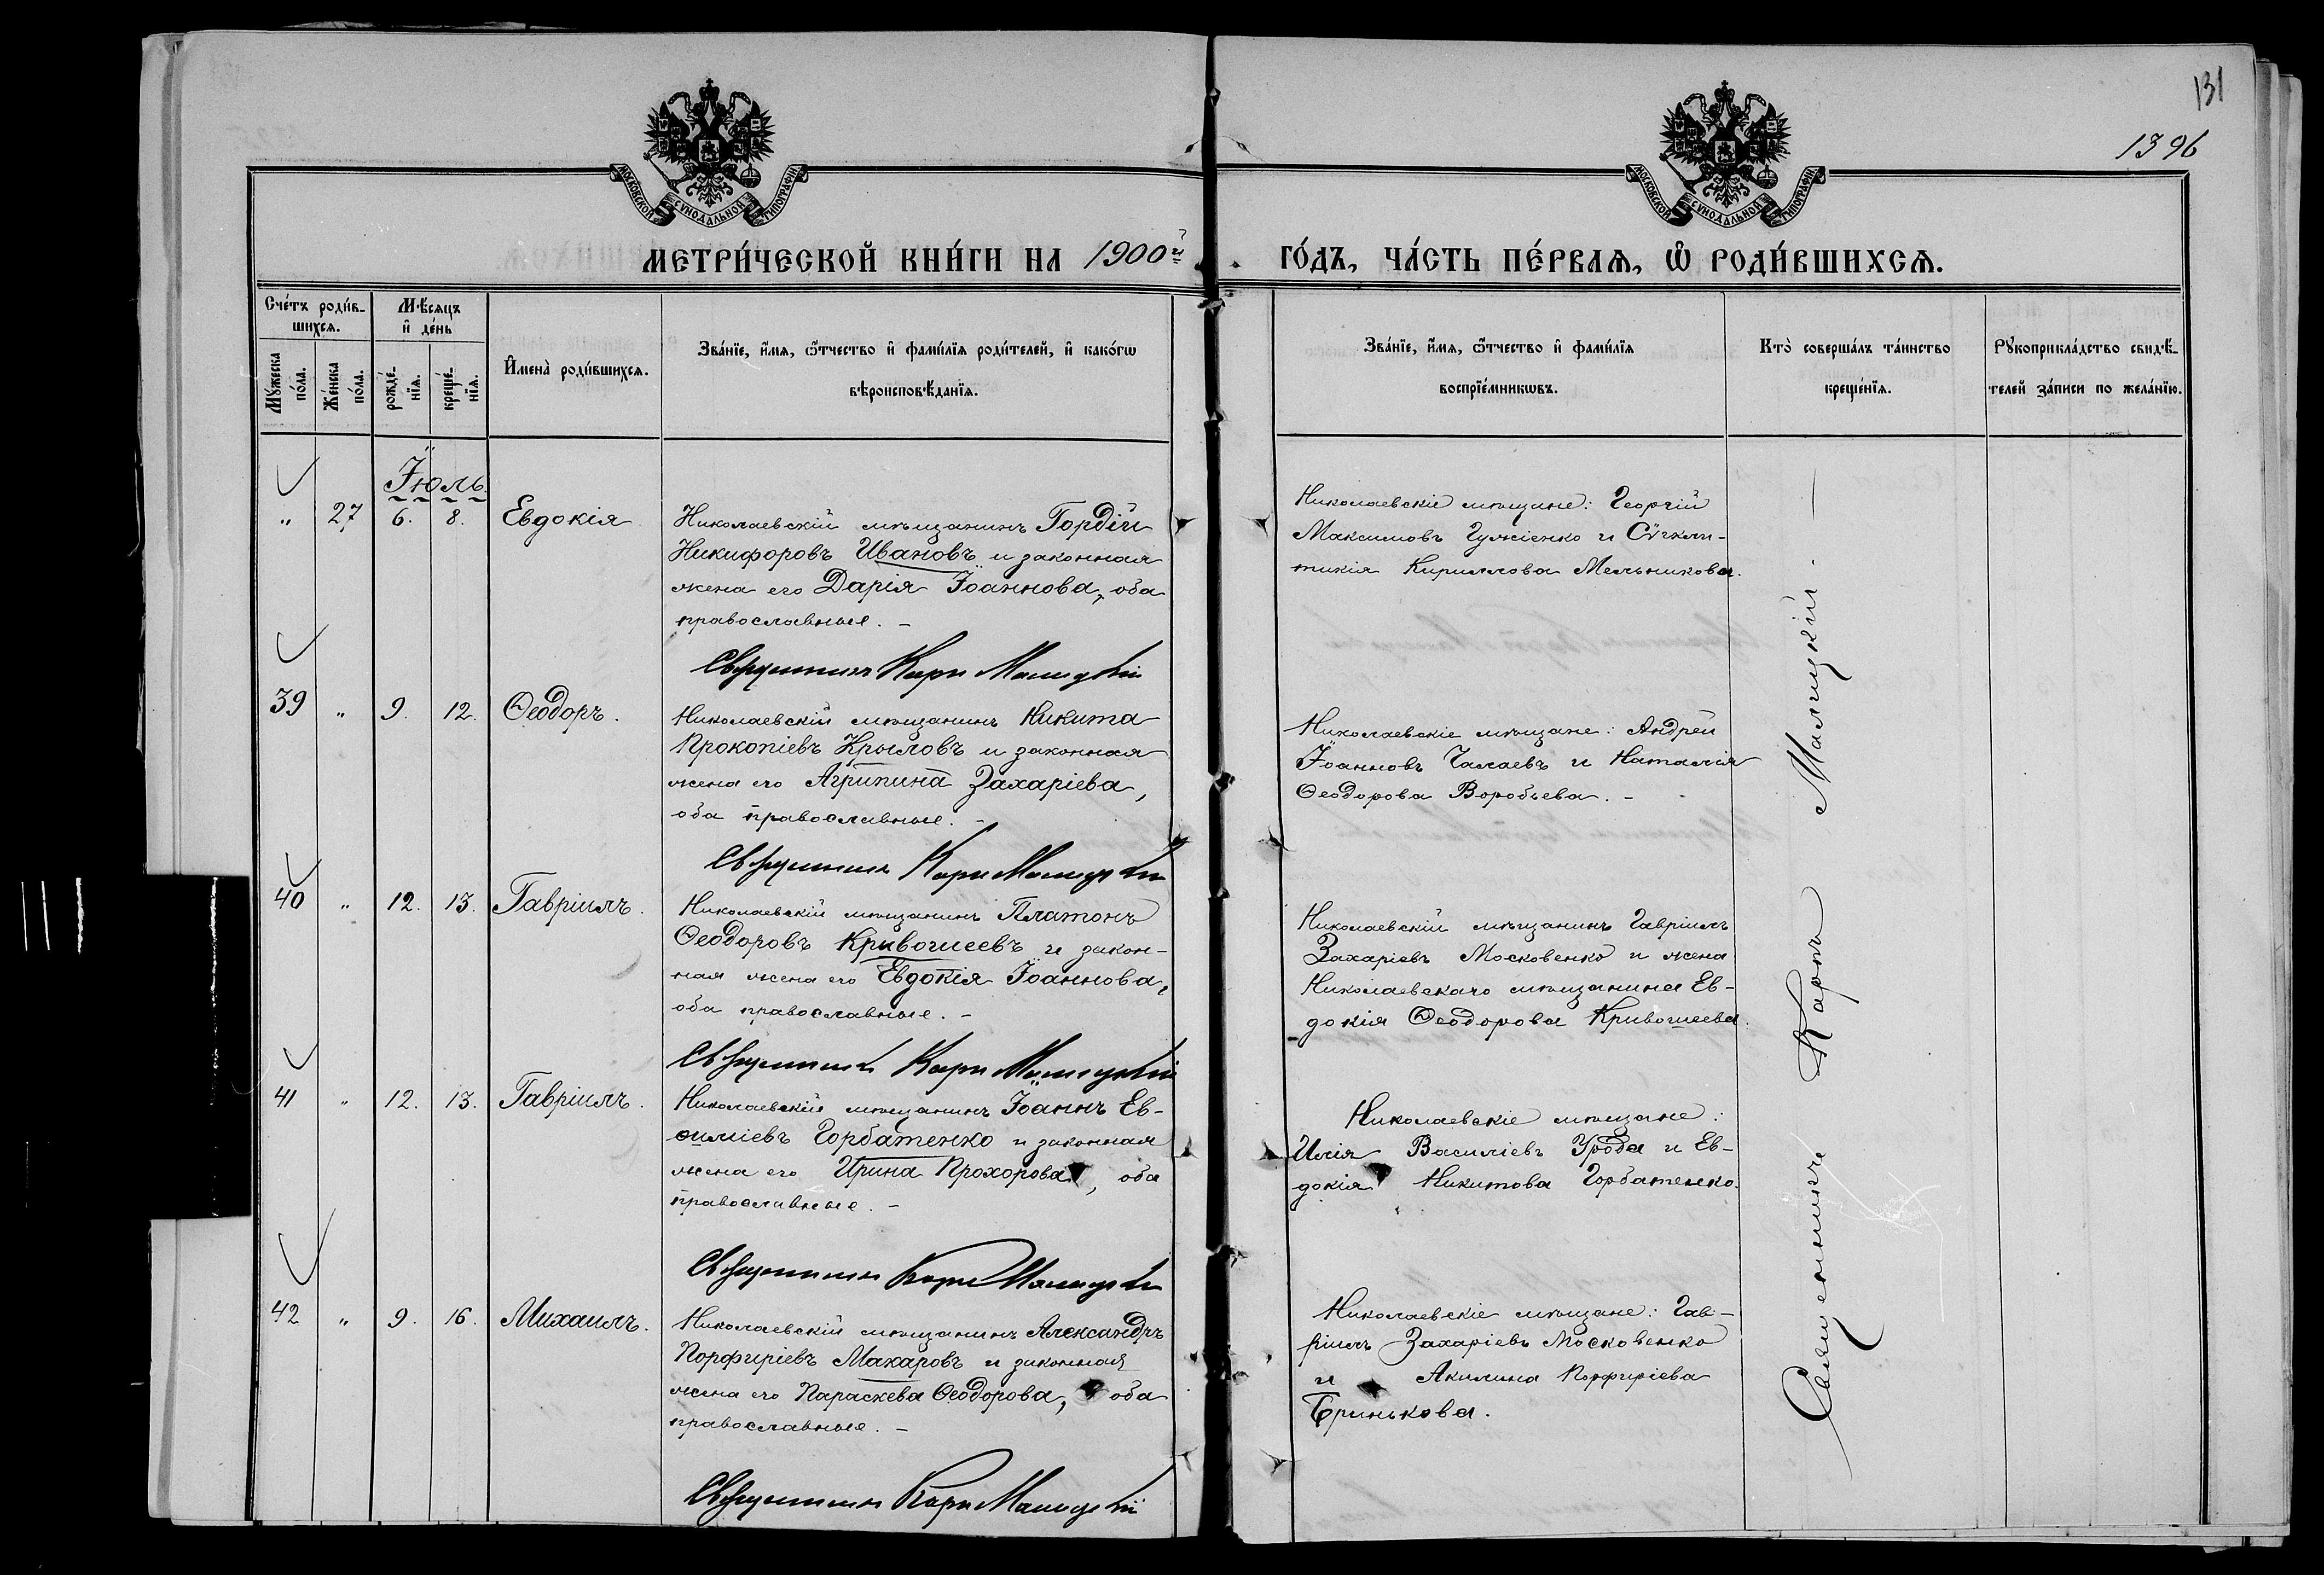 131
1396
МОСКОВСКОЙ СѴНОДАЛЬНОЙ ТИПОГРАФІИ
МОСКОВСКОЙ СѴНОДАЛЬНОЙ ТИПОГРАФІИ
МЕТРИ́ЧЕСКОЙ КНИ́ГИ НА 1900й
ГО́ДЪ, ЧА́СТЬ ПЕ́РВАЯ, Ѽ РОДИ́ВШИХСЯ.
Сче́тъ роди́в-
шихся.
Мꙋжеска
по́ла.
Же́нска
по́ла.
Мѣ́сяцъ
и҆ де́нь
рожде́-
нїя.
креще́-
нїя.
И҆мена̀ роди́вшихся.
Зва́нїе, и҆́мя, ѻ҆́тчество и҆ фами́лїя роди́телей, и҆ како́гѡ
вѣроисповѣ́данїя.
Зва́нїе, и҆́мя, ѻ҆́тчество и҆ фами́лїя
воспрїе́мникѡвъ.
Кто̀ соверша́лъ та́инство
креще́нїя.
Рꙋкоприкла́дство свидѣ́-
телей за́писи по жела́нїю.
Іюль
" 27 6. 8. Евдокія
Николаевскій мѣщанинъ Гордій
Никифоровъ Ивановъ и законная
жена его Дарія Іоаннова, оба
православные. –
Священникъ Карпъ Малицкій
Николаевскіе мѣщане: Георгій
Максимовъ Гужіенко и Сѵгкли-
тикія Кириллова Мельникова.
39 " 9. 12. Ѳеодоръ.
Николаевскій мѣщанинъ Никита
Прокопіевъ Крыловъ и законная
жена его Агрипина Захаріева,
оба православные. –
Священникъ Карпъ Малицкій
Николаевскіе мѣщане: Андрей
Іоанновъ Чалаевъ и Наталія
Ѳеодорова Воробьева. –
40 " 12. 13. Гавріилъ.
Николаевскій мѣщанинъ Платонъ
Ѳеодоровъ Кривошеевъ и закон-
ная жена его Евдокія Іоаннова,
оба православные. –
Священникъ Карпъ Малицкій
Николаевскій мѣщанинъ Гавріилъ
Захаріевъ Московенко и жена
Николаевскаго мѣщанина Ев-
докія Ѳеодорова Кривошеева.
41 " 12. 13. Гавріилъ.
Николаевскій мѣщанинъ Іоаннъ Ев-
ѳиміевъ Горбатенко и законная
жена его Ирина Прохорова, оба
православные. –
Священникъ Карпъ Малицкій
Николаевскіе мѣщане:
Илія Василіевъ Урода и Ев-
докія Никитова Горбатенко.
42 " 9. 16. Михаилъ.
Николаевскій мѣщанинъ Александръ
Порфиріевъ Макаровъ и законная
жена его Параскева Ѳеодорова, оба
православные. –
Священникъ Карпъ Малицкій
Николаевскіе мѣщане: Гав-
ріилъ Захаріевъ Московенко
и Акилина Порфиріева
Бринькова.
Священникъ Карпъ Малицкій. –